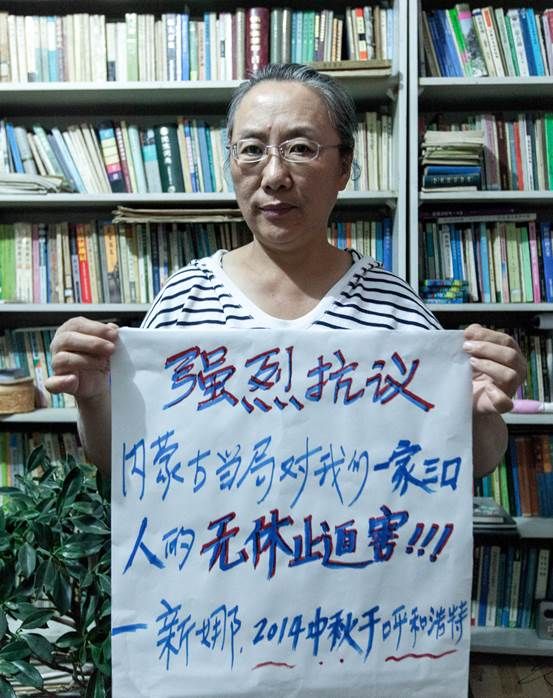 强烈抗议
内蒙古当局对我们一家三口
人的无休止迫害!!!
一新娜.2014中秋于呼和浩特